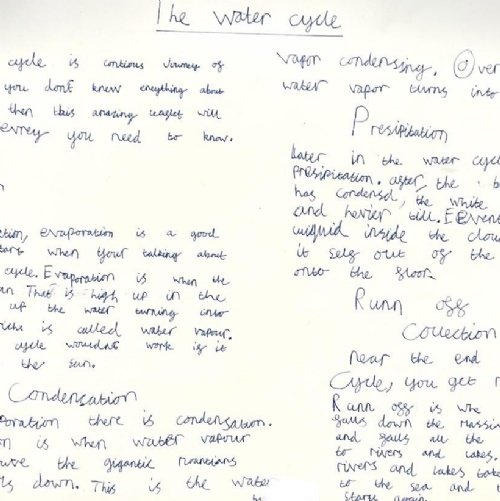 The water cycle
cycle is contious Journey of
you dont know eneything about
then this amazing leaflet will
evrey you need to know.
ction, evaporation is a good
start when your talking about
cycle. Evaporation is when the
That is high up in the
up the water turning onto
is called water vapour.
cycle wouldnt work if it
the sun.
Condensation
poration there is condensation.
on is when water vapour
the gigantic
down. This is the water
vapor condensing. Over
water vapor turns into
Presipitation
Later in the water cycle
presipitation. after, the
has condensd, the white
and hevier till. Event
liquid inside the clou
it self out of the
onto the floor
Runn off
Collection
near the end
Cycle, you get
Runn off is whe
falls down the massiv
and falls all the
to rivers and lakes.
rivers and lakes take
to the sea and i
starts again.